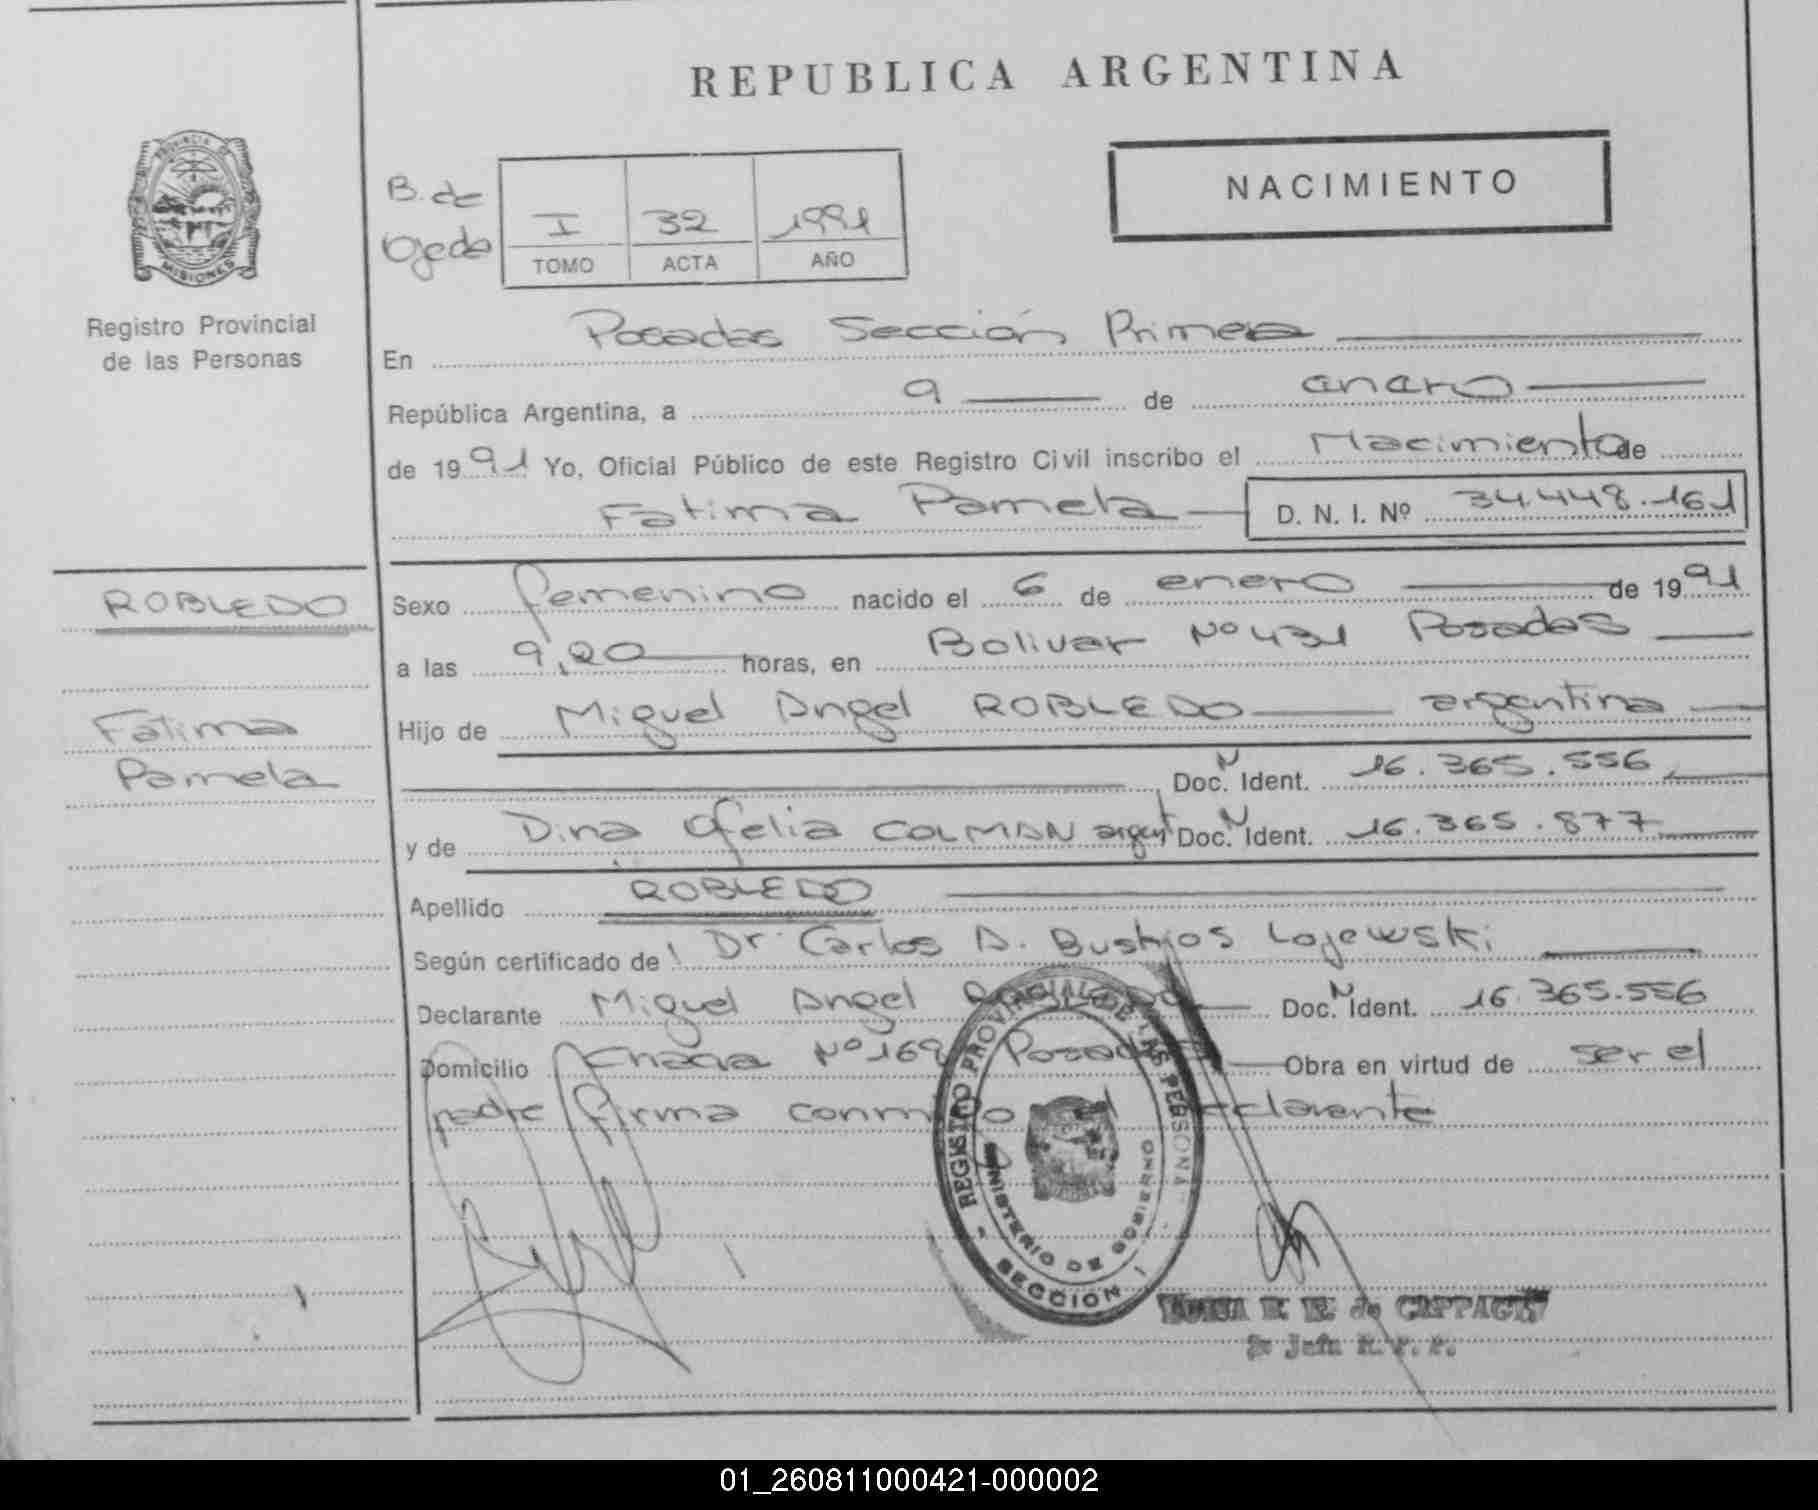 REPUBLICA ARGENTINA
NACIMIENTO
PROVINCIA DE
MISIONES
Registro Provincial
de las Personas
B. de
Ojeda
I 32 1991
TOMO ACTA AÑO
En Posadas Sección Primera
República Argentina, a 9 de enero
de 1991 Yo, Oficial Público de este Registro Civil inscribo el Nacimiento de
Fatima Pamela D. N. I. Nº 34.448.161
ROBLEDO
Fatima
Pamela
Sexo femenino nacido el 6 de enero de 1991
a las 9,20 horas, en Bolivar Nº 431 Posadas
Hijo de Miguel Angel ROBLEDO argentina
Doc. N Ident. 16.365.556
y de Dina Ofelia COLMAN argent Doc. N Ident. 16.365.877
Apellido ROBLEDO
Según certificado de Dr. Carlos A. Bustos Lojewski
Declarante Miguel Angel Doc. N Ident. 16.365.556
Domicilio Nº 169 Posadas Obra en virtud de ser el
padre firma conmigo el declarante
REGISTRO PROVINCIAL DE LAS PERSONAS
MINISTERIO DE GOBIERNO
- SECCION I -
de
Jefa R. P. P.
01_260811000421-000002